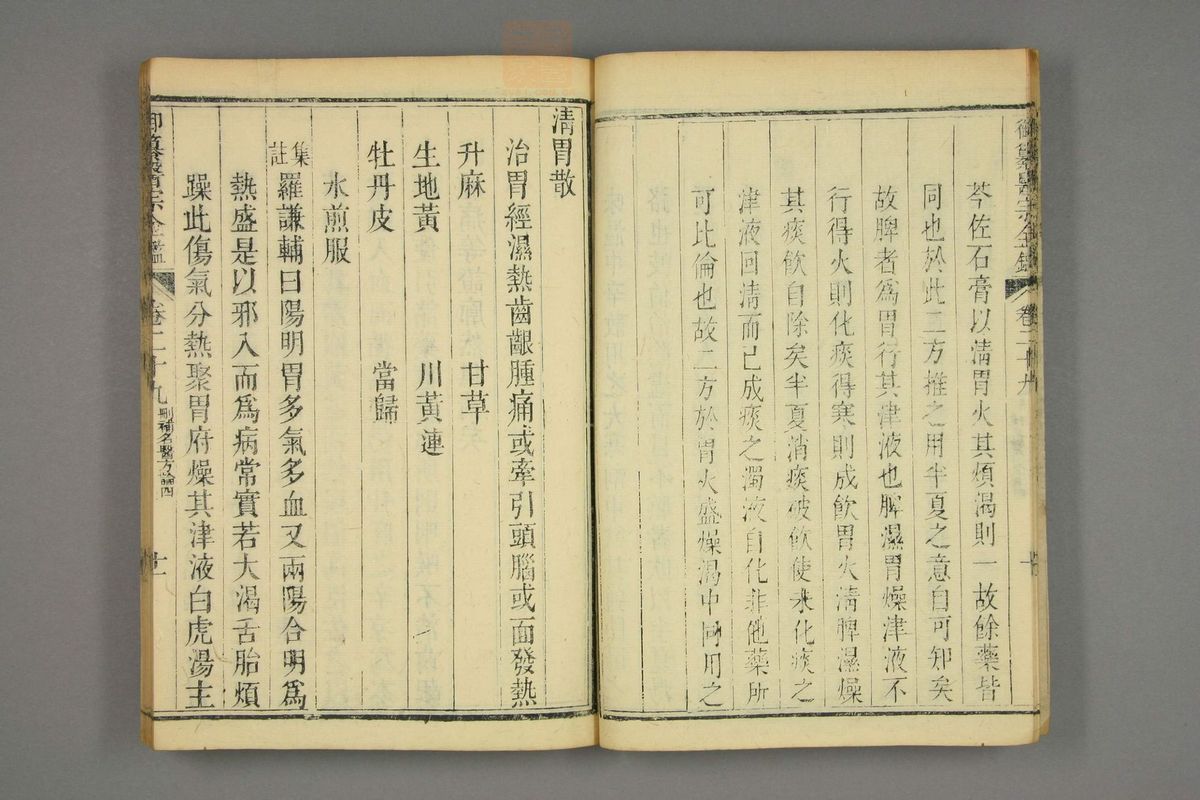 御纂醫宗金鑑 卷二十九 十
芩佐石膏以淸胃火其煩渴則一故餘藥皆
同也於此二方推之用半夏之意自可知矣
故脾者爲胃行其津液也脾濕胃燥津液不
行得火則化痰得寒則成飮胃火淸脾濕燥
其痰飮自除矣半夏消痰破飮使未化痰之
津液回淸而已成痰之濁液自化非他藥所
可比倫也故二方於胃火盛燥渴中同用之
淸胃散
治胃經濕熱齒齦腫痛或牽引頭腦或面發熱
升麻 甘草
生地黃 川黃連
牡丹皮 當歸
水煎服
集註 羅謙輔曰陽明胃多氣多血又兩陽合明爲
熱盛是以邪入而爲病常實若大渴舌胎煩
躁此傷氣分熱聚胃府燥其津液白虎湯主
御纂醫宗金鑑 卷二十九 刪補名醫方論四 十一